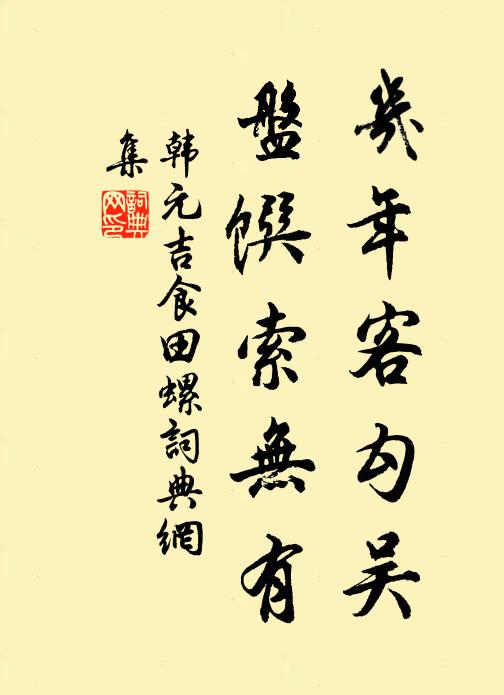 幾年客勾吴
盤饌索無有
韩元吉食田螺詞典網
集
詞典
网印